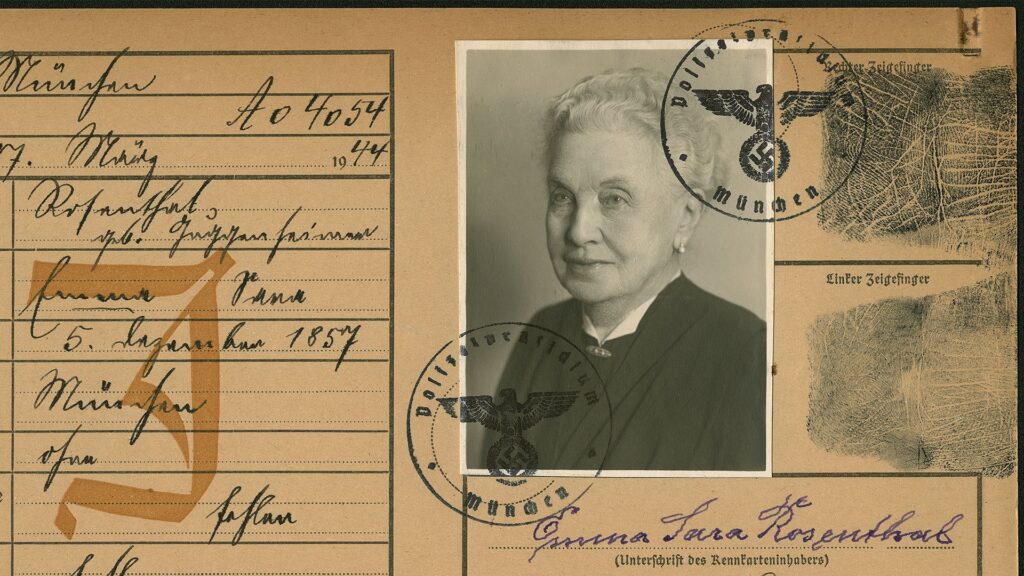 München
A 04054
7. März 1944
Rosenthal,
geb. Guggenheimer
Emma Sara
5. Dezember 1857
München
ohne
fehlen
J
Polizeipräsidium
München
Rechter Zeigefinger
Linker Zeigefinger
Polizeipräsidium
München
Emma Sara Rosenthal
(Unterschrift des Kennkarteninhabers)